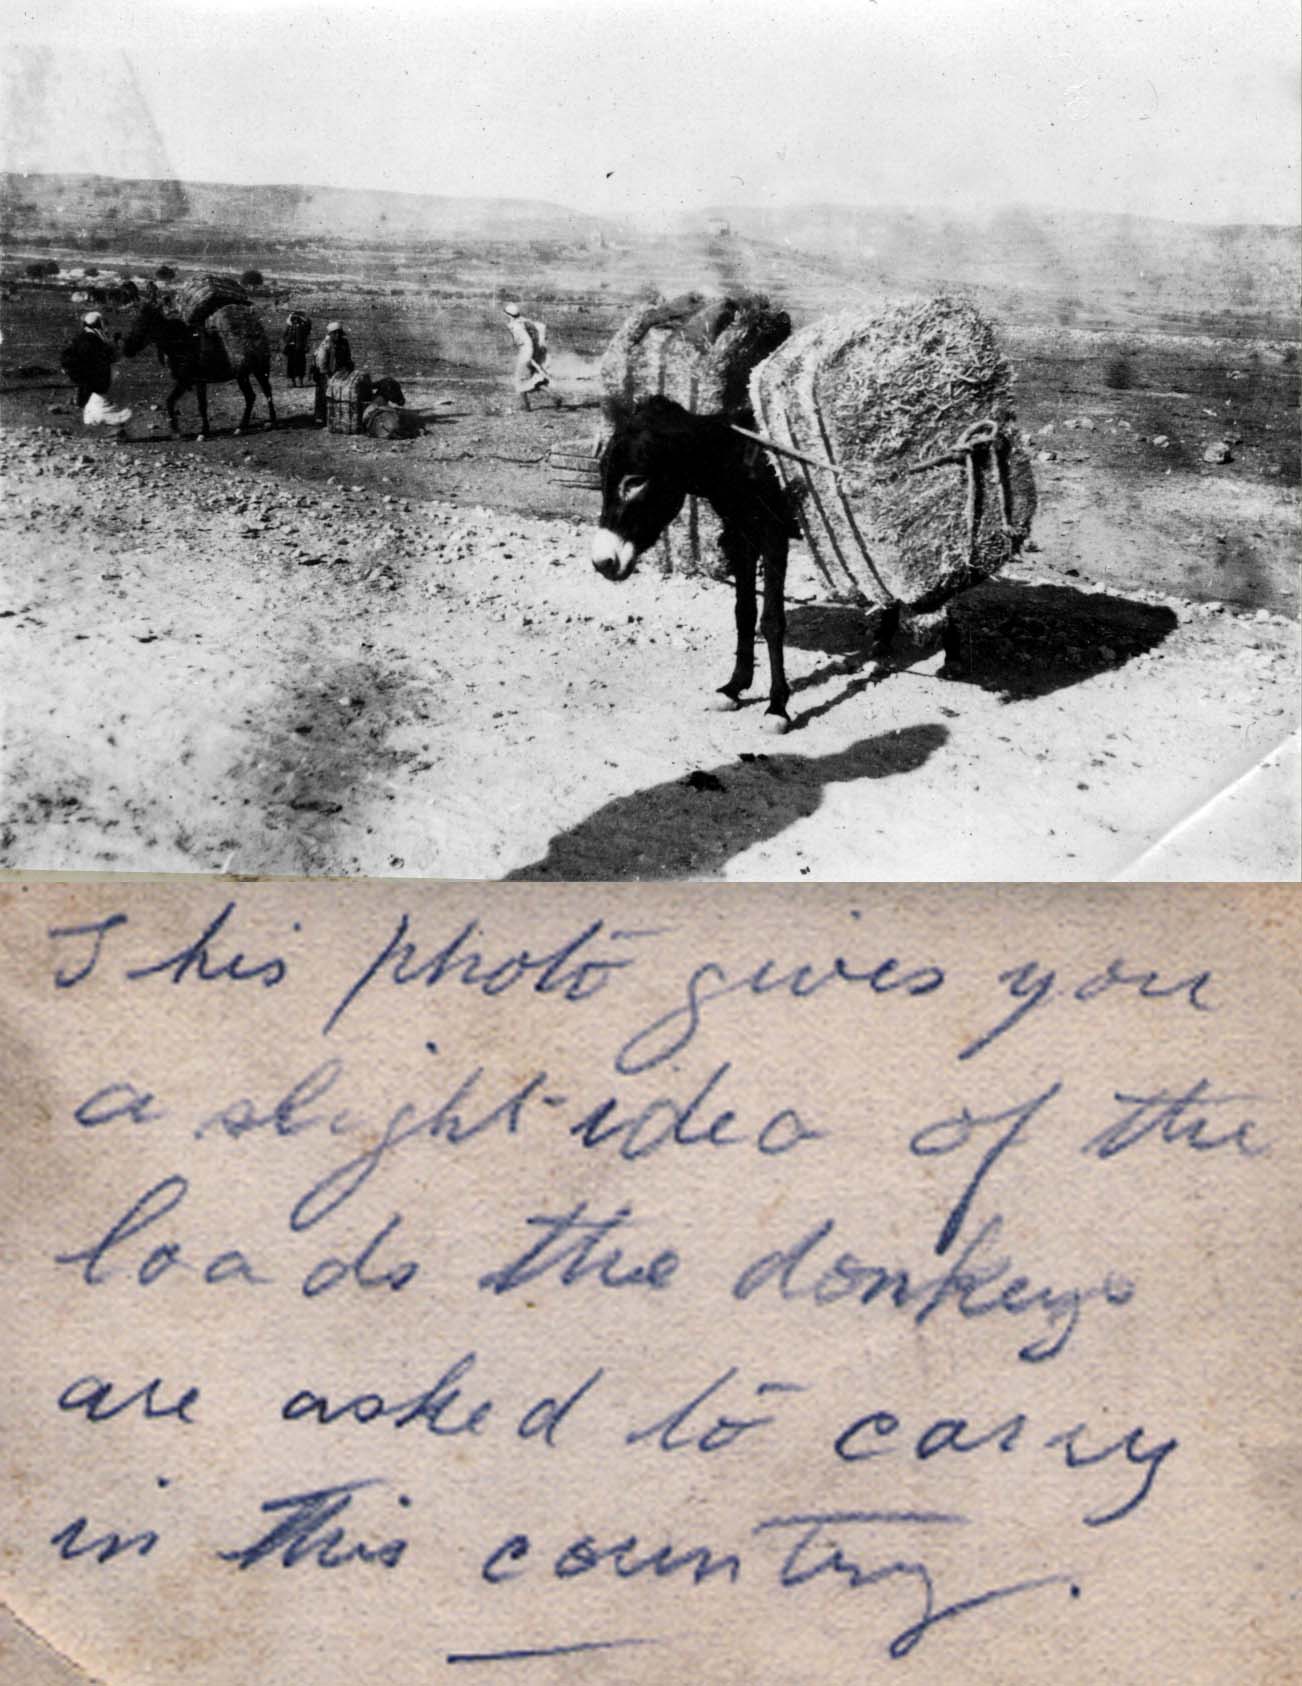 This photo gives you
a slight idea of the
loads the donkeys
are asked to carry
in this country.